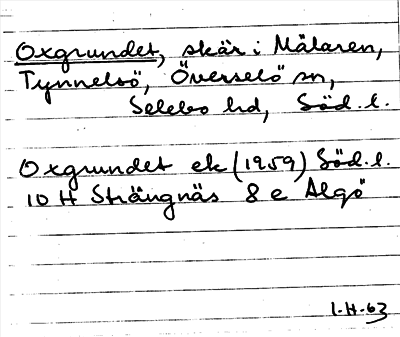 Oxgrundet, skär i Mälaren,
Tynnelsö, Överselö sn,
Selebo hd, Söd. l.
Oxgrundet ek (1959) Söd. l.
10 H Strängnäs 8 e Algö
1-H-63